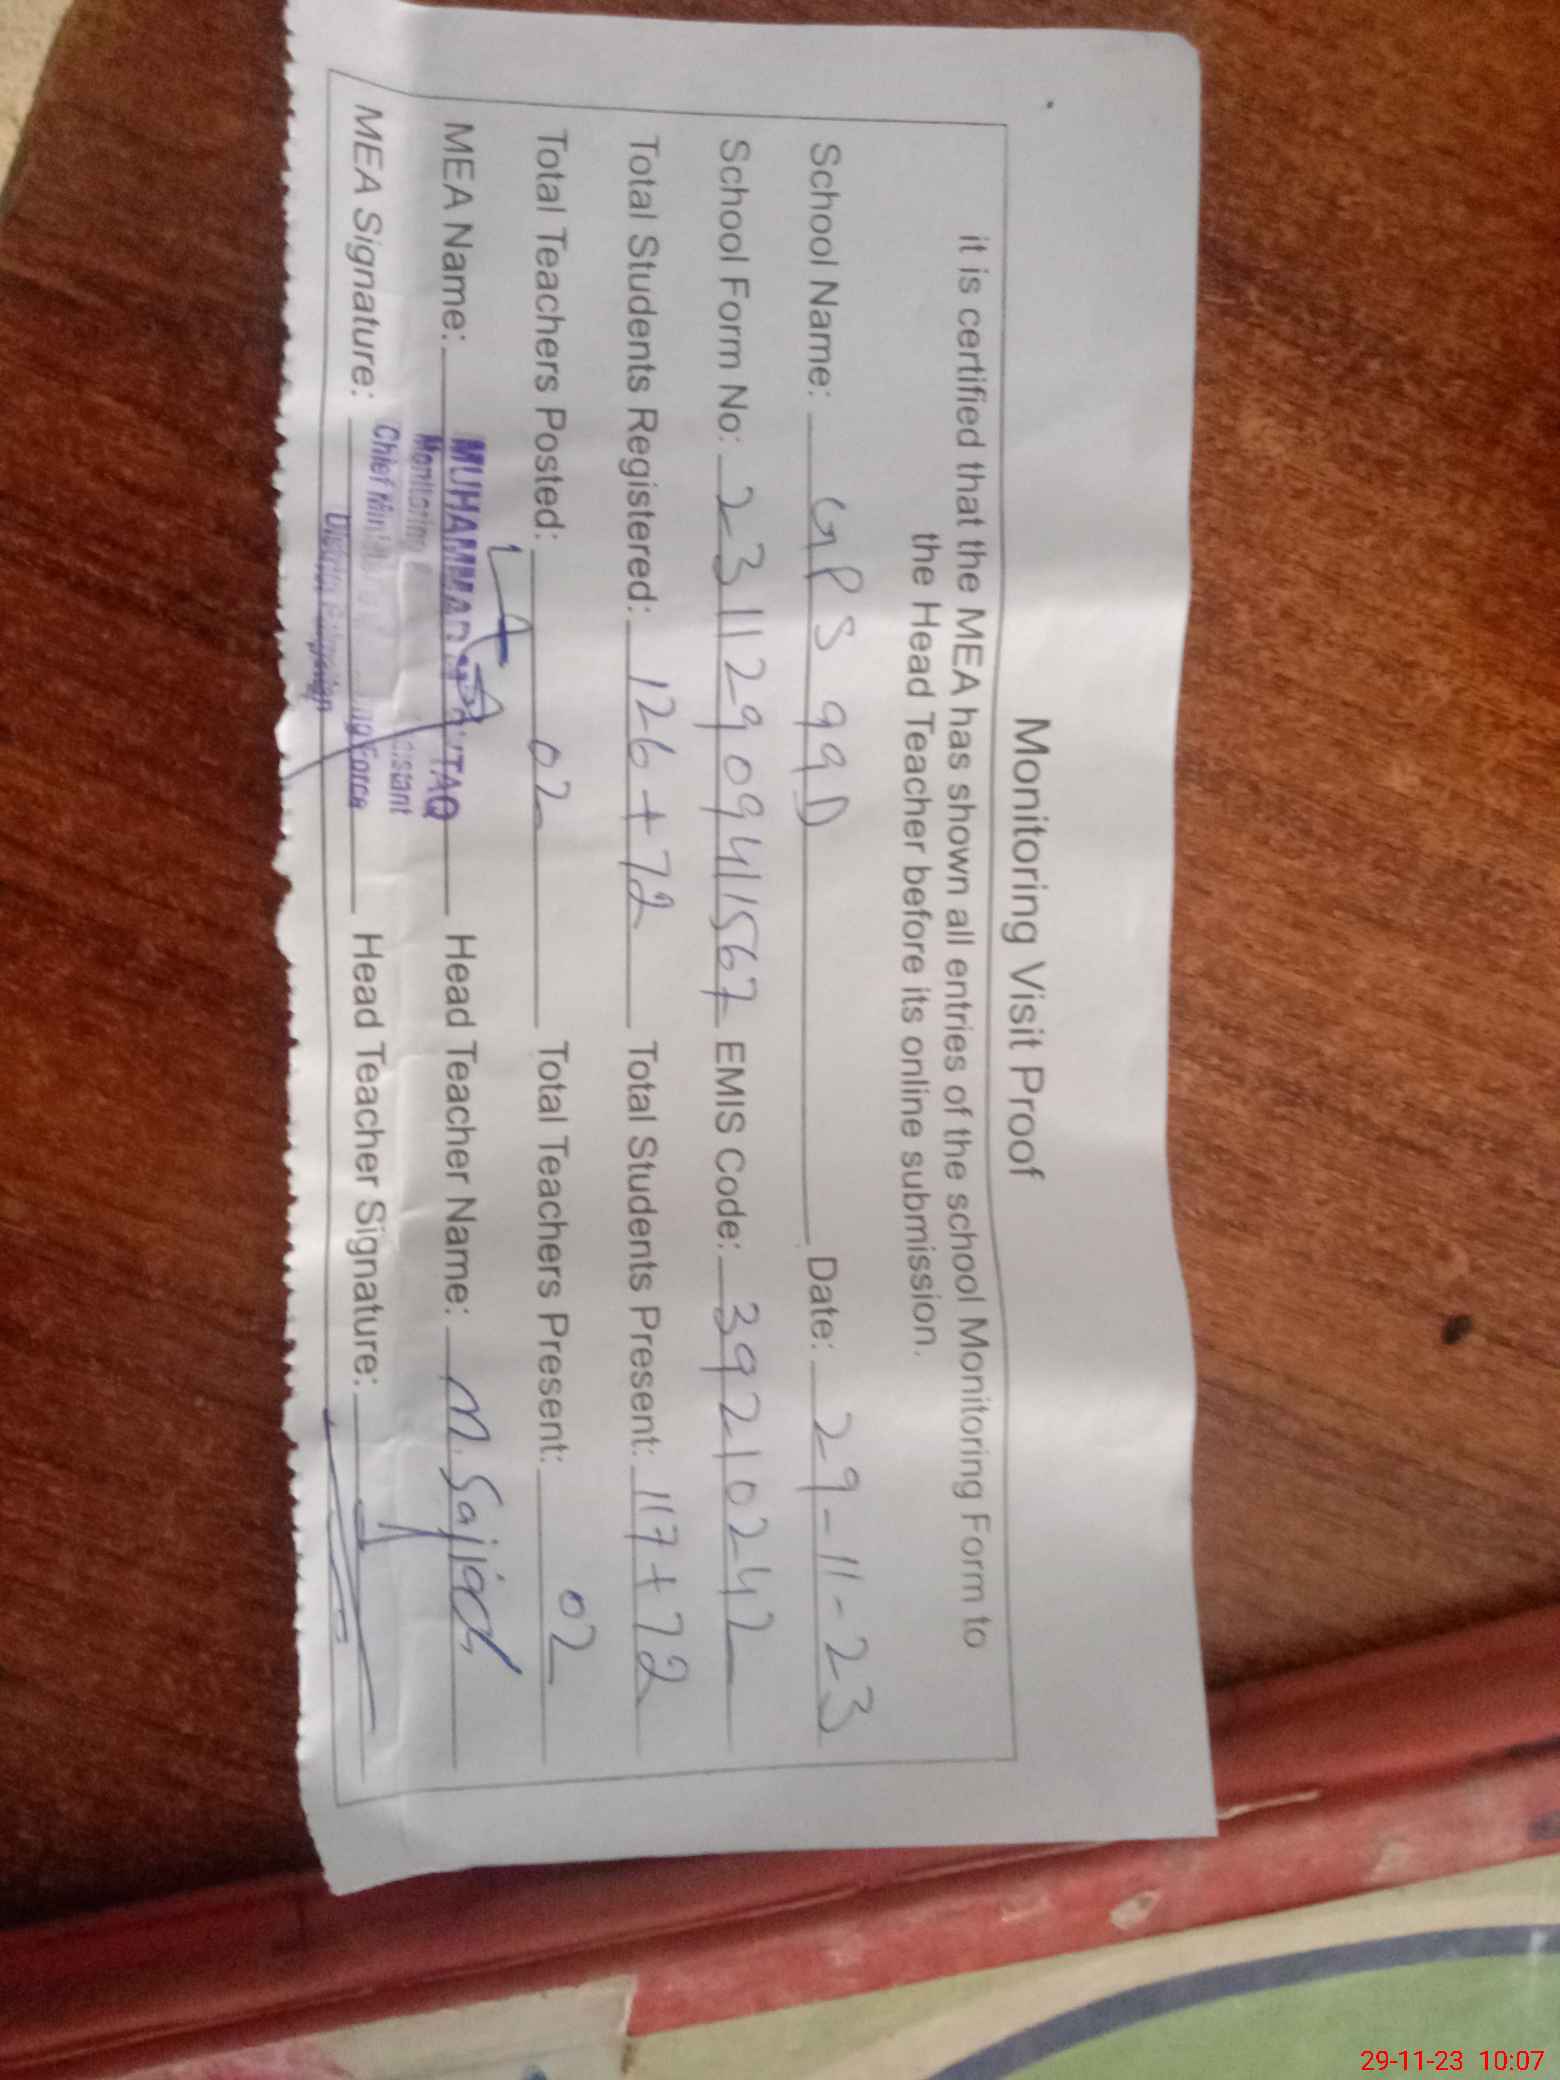 Monitoring Visit Proof
it is certified that the MEA has shown all entries of the school Monitoring Form to
the Head Teacher before its online submission.
School Name: GPS 99D Date: 29-11-23
School Form No: 231129090941567 EMIS Code: 39210242
Total Students Registered: 126+72 Total Students Present: 117+72
Total Teachers Posted: 02 Total Teachers Present: 02
MEA Name: MUHAMMAD Head Teacher Name: M. Sajjad
Monitoring
MEA Signature: Head Teacher Signature:
Chief Force
District
29-11-23 10:07